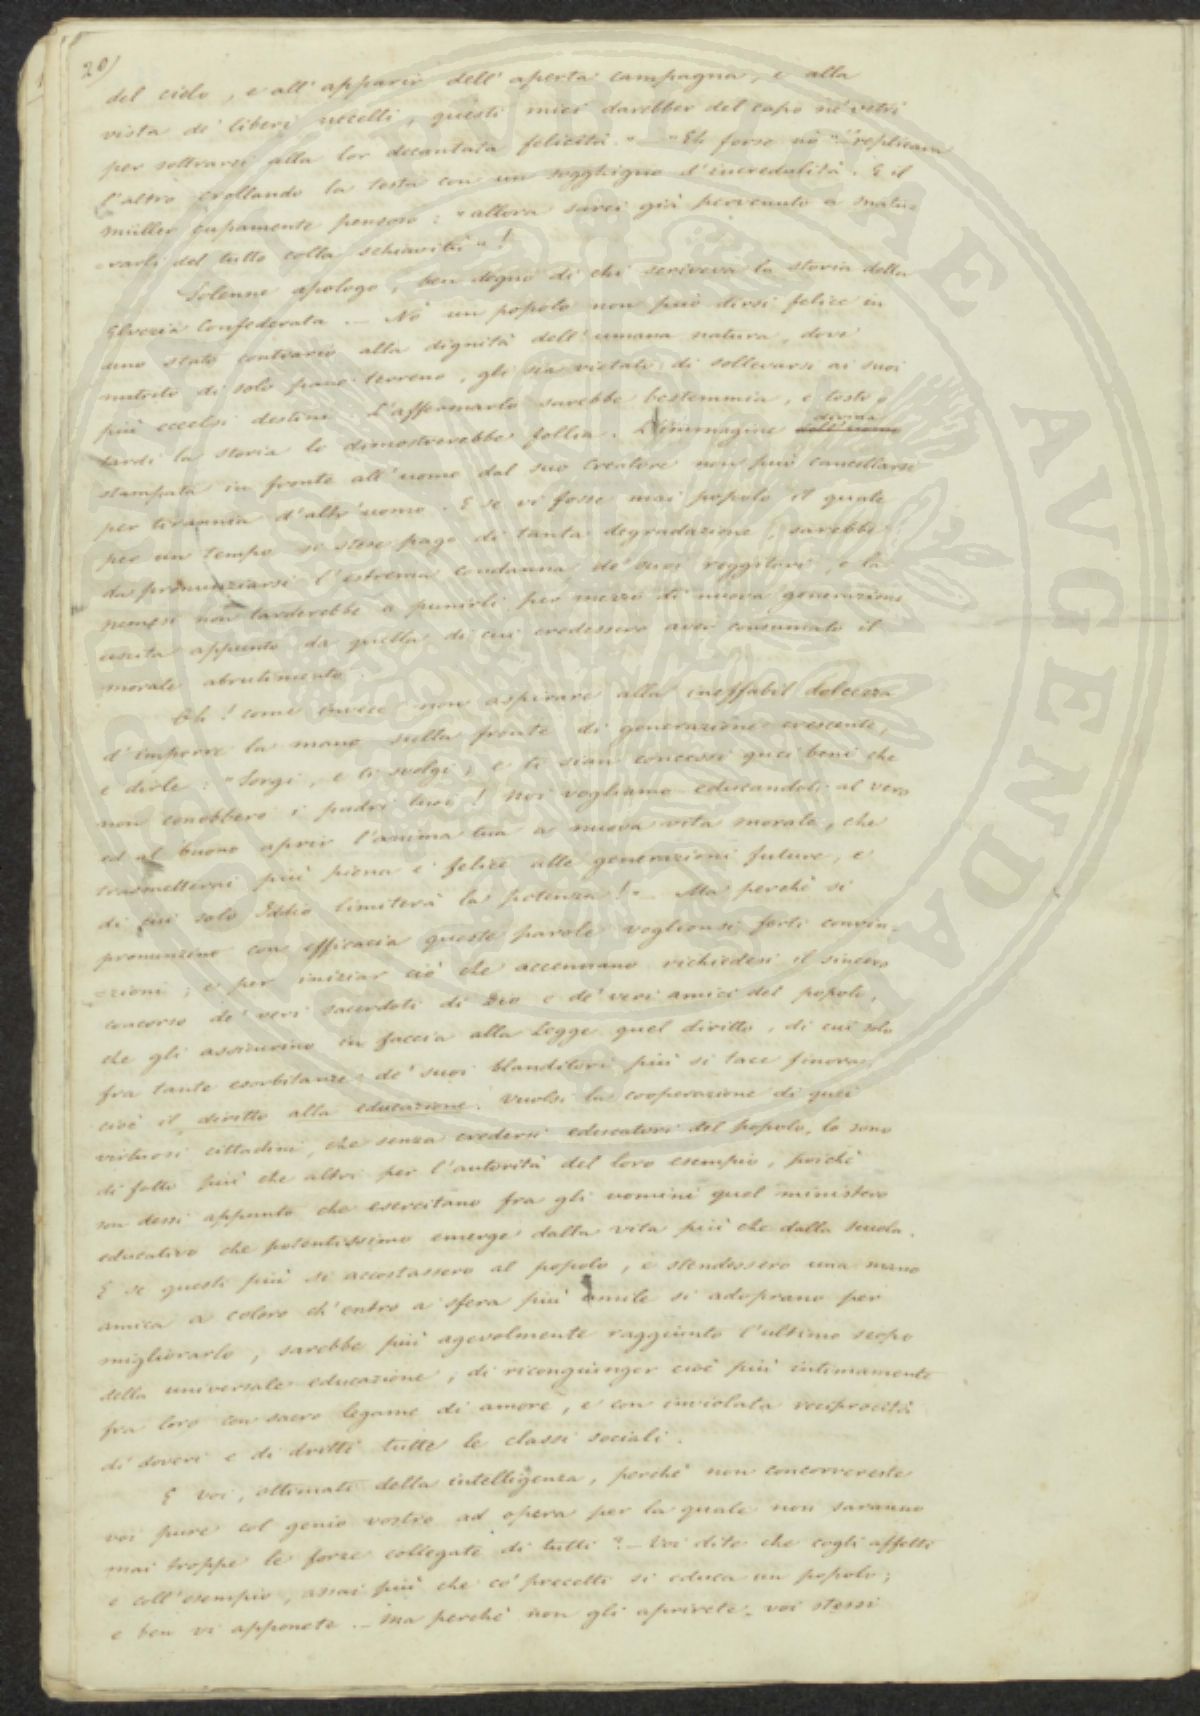 20)
del cielo, e all'apparir dell'aperta campagna, e alla
vista de' liberi uccelli, questi miei darebber del capo ne' vetri
per sottrarsi alla lor decantata felicità." — "Eh forse nò" replicava
l'altro crollando la testa con un sogghigno d'incredulità. E il
müller cupamente pensoso: "allora sarei già pervenuto a matu-
-rarli del tutto colla schiavitù"!
Solenne apologo, ben degno di chi scriveva la storia della
Elvezia Confederata. — Nò un popolo non può dirsi felice in
uno stato contrario alla dignità dell'umana natura, dove
nutrito di solo pane terreno, gli sia vietato di sollevarsi ai suoi
più eccelsi destini. L'affermarlo sarebbe bestemmia, e tosto o
tardi la storia lo dimostrerebbe follia. L'immagine divina
stampata in fronte all'uomo dal suo Creatore non può cancellarsi
per tirannia d'altr'uomo. E se vi fosse mai popolo il quale
per un tempo si stesse pago di tanta degradazione, sarebbe
da pronunziarsi l'estrema condanna de' suoi reggitori, e la
nemesi non tarderebbe a punirli per mezzo di nuova generazione
uscita appunto da quella di cui credessero aver consumato il
morale abrutimento.
Oh! come invece non aspirare alla ineffabil dolcezza
d'imporre la mano sulla fronte di generazione crescente,
e dirle: "Sorgi, e ti svolgi, e ti sian concessi quei beni che
non conobbero i padri tuoi! Noi vogliamo educandoti al vero
ed al buono aprir l'anima tua a nuova vita morale, che
trasmetterai più piena e felice alle generazioni future, e
di cui solo Iddio limiterà la potenza!" — Ma perchè si
pronunzino con efficacia queste parole voglionsi forti convin-
-zioni; e per iniziar ciò che accennano richiedesi il sincero
concorso de' veri sacerdoti di Dio e de' veri amici del popolo,
che gli assicurino in faccia alla Legge quel diritto, di cui solo
fra tante esorbitanze de' suoi blanditori più si tace finora,
cioè il diritto alla educazione. Vuolsi la cooperazione di quei
virtuosi cittadini, che senza credersi educatori del popolo, lo sono
di fatto più che altri per l'autorità del loro esempio, poichè
son dessi appunto che esercitano fra gli uomini quel ministero
educativo che potentissimo emerge dalla vita più che dalla scuola.
E se questi più si accostassero al popolo, e stendessero una mano
amica a coloro ch'entro a sfera più umile si adoprano per
migliorarlo, sarebbe più agevolmente raggiunto l'ultimo scopo
della universale educazione, di ricongiunger cioè più intimamente
fra loro con sacro legame di amore, e con inviolata reciprocità
di doveri e di dritti tutte le classi sociali.
E voi, ottimati della intelligenza, perchè non concorrereste
voi pure col genio vostro ad opera per la quale non saranno
mai troppe le forze collegate di tutti? — Voi dite che cogli affetti
e coll'esempio, assai più che co' precetti si educa un popolo;
e ben vi apponete. — Ma perchè non gli aprirete voi stessi